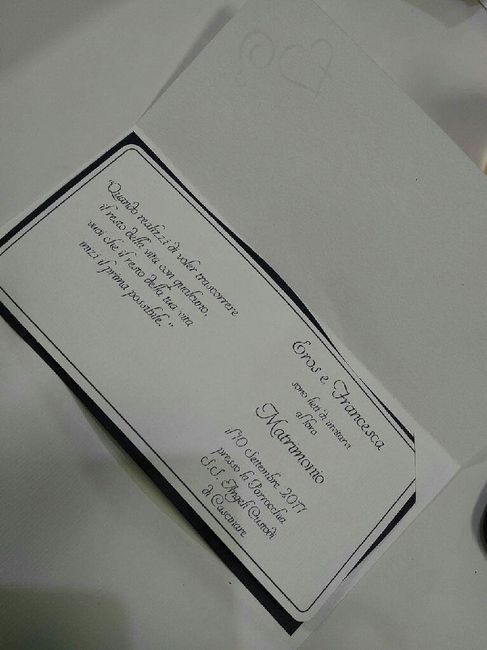 "Quando realizzi di voler trascorrere
il resto della vita con qualcuno,
vuoi che il resto della tua vita
inizi il prima possibile."
Eros e Francesca
sono lieti di invitarvi
al loro
Matrimonio
il 10 Settembre 2017
presso la Parrocchia
S.S. Angeli Custodi
di Cascinare